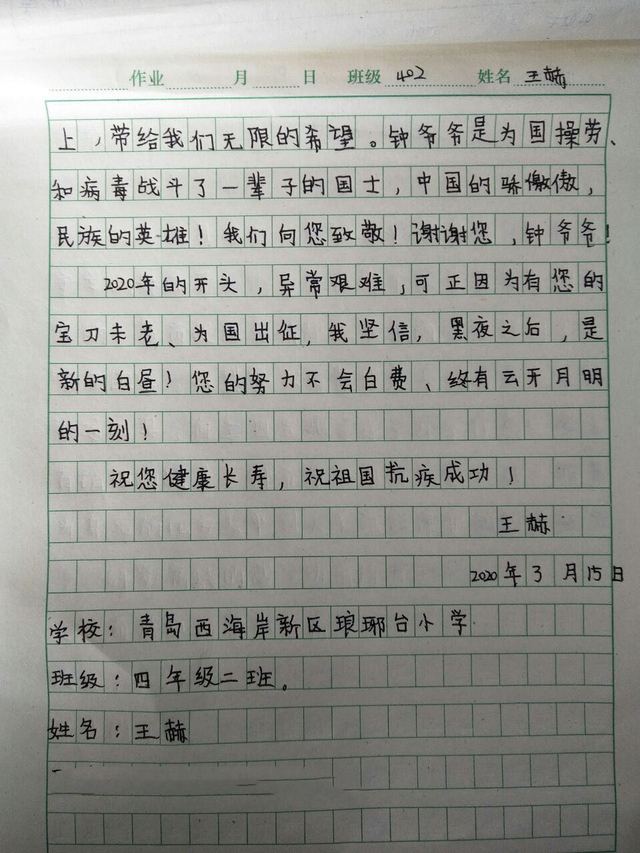 作业 月 日 班级 402 姓名 王赫
上，带给我们无限的希望。钟爷爷是为国操劳、
和病毒战斗了一辈子的国士，中国的骄傲傲，
民族的英雄！我们向您致敬！谢谢您，钟爷爷！
2020年的开头，异常艰难，可正因为有您的
宝刀未老、为国出征，我坚信，黑夜之后，是
新的白昼！您的努力不会白费、终有云开月明
的一刻！
祝您健康长寿，祝祖国抗疾成功！
王赫
2020年3月15日
学校：青岛西海岸新区琅琊台小学
班级：四年级二班。
姓名：王赫